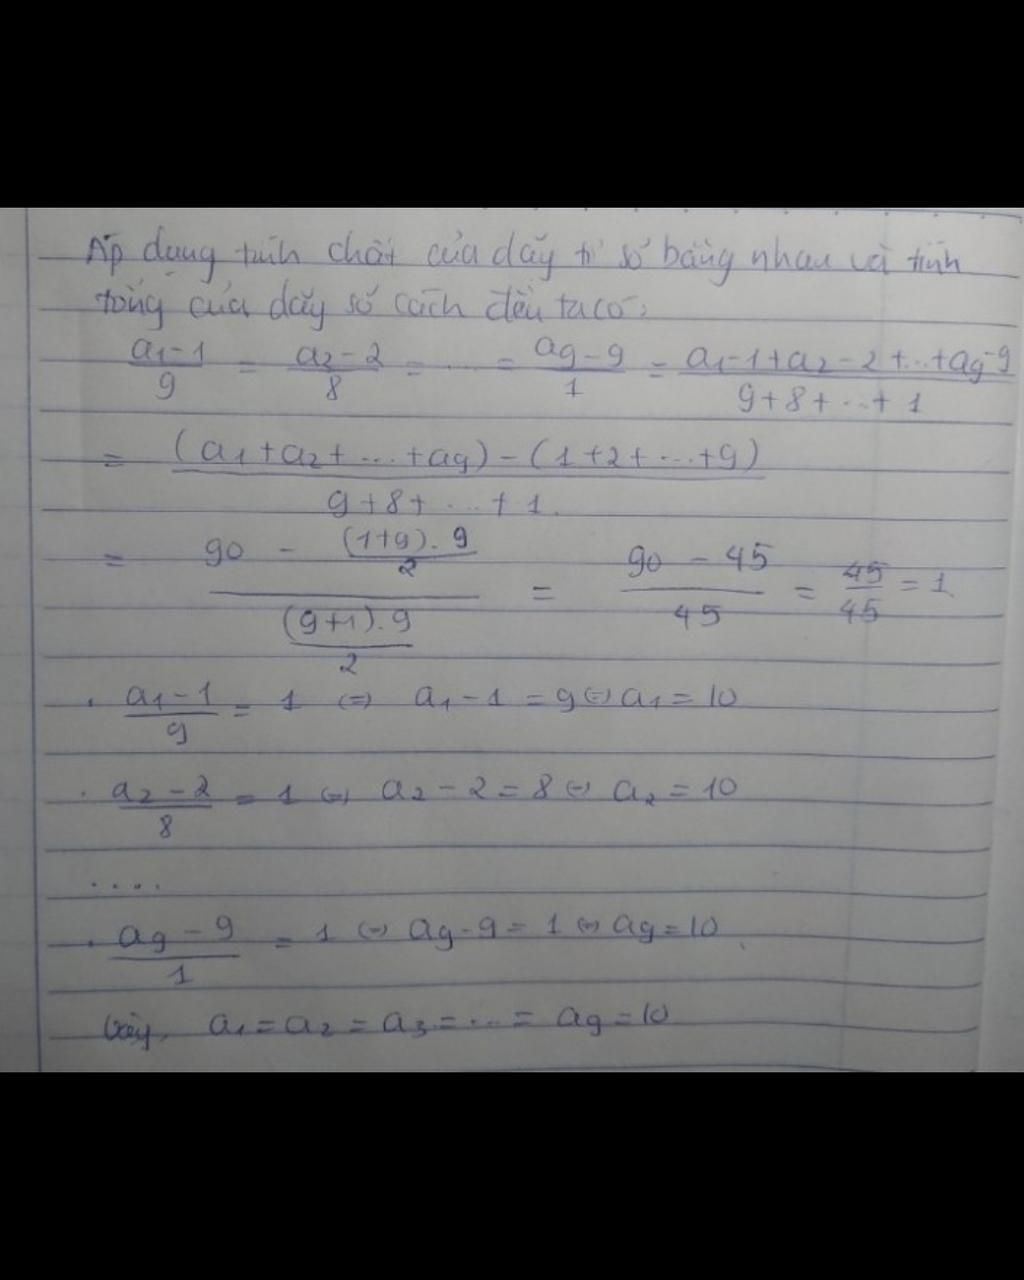 Áp dụng tính chất của dãy tỉ số bằng nhau và tính
tổng của dãy số cách đều ta có:
\frac{a_1-1}{9} = \frac{a_2-2}{8} = ... = \frac{a_9-9}{1} = \frac{a_1-1+a_2-2+...+a_9-9}{9+8+...+1}
= \frac{(a_1+a_2+...+a_9)-(1+2+...+9)}{9+8+...+1}
= \frac{90-\frac{(1+9).9}{2}}{\frac{(9+1).9}{2}} = \frac{90-45}{45} = \frac{45}{45} = 1
. \frac{a_1-1}{9} = 1 ⇔ a_1-1 = 9 ⇔ a_1 = 10
. \frac{a_2-2}{8} = 1 ⇔ a_2-2 = 8 ⇔ a_2 = 10
....
. \frac{a_9-9}{1} = 1 ⇔ a_9-9 = 1 ⇔ a_9 = 10
Vậy, a_1 = a_2 = a_3 = ... = a_9 = 10